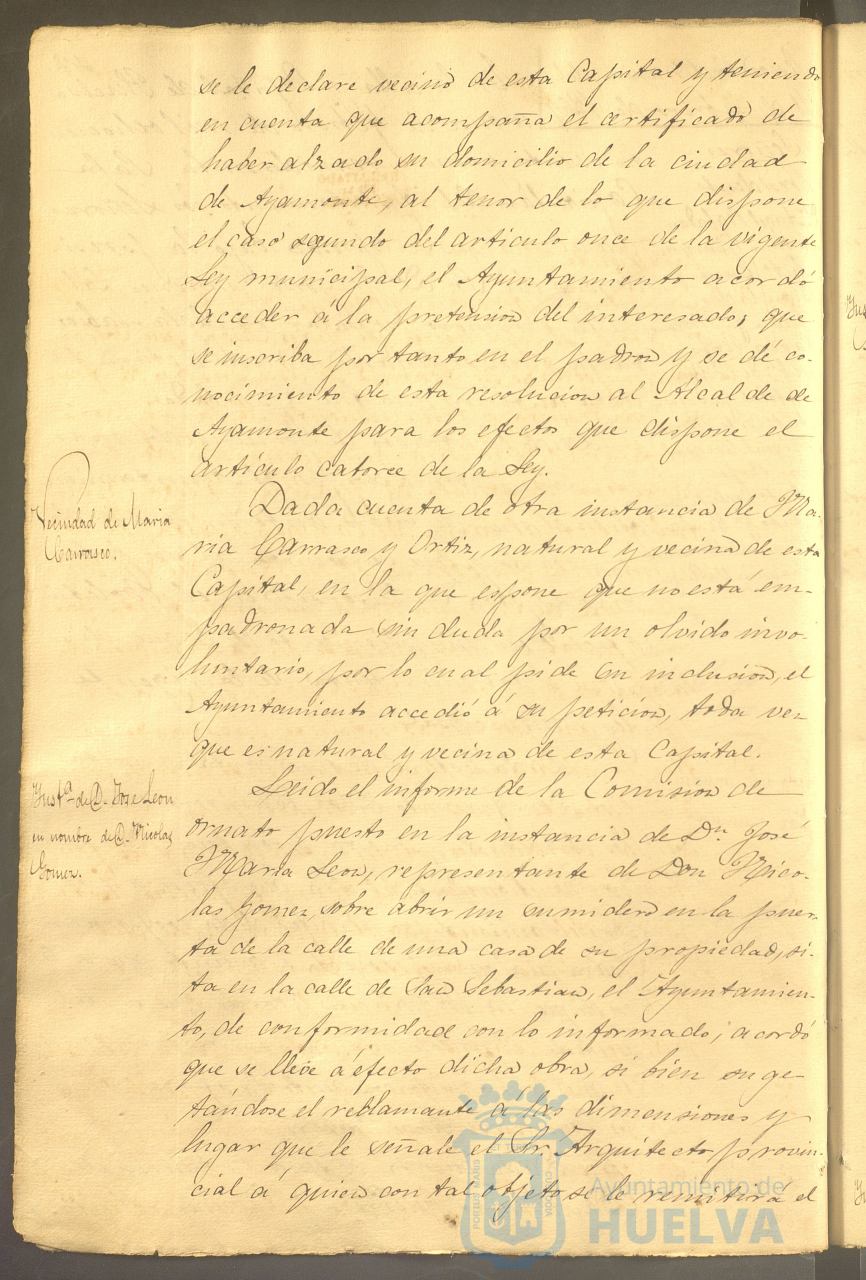 se le declare vecino de esta Capital y teniendo
en cuenta que acompaña el certificado de
haber alzado su domicilio de la ciudad
de Ayamonte, al tenor de lo que dispone
el caso segundo del articulo once de la vigente
Ley municipal, el Ayuntamiento acordó
acceder á la pretension del interesado, que
se inscriba por tanto en el padron y se dé co-
nocimiento de esta resolucion al Alcalde de
Ayamonte para los efectos que dispone el
artículo catorce de la Ley.
Vecindad de Maria
Carrasco.
Dada cuenta de otra instancia de Ma-
ria Carrasco y Ortiz, natural y vecina de esta
Capital, en la que espone que no está em-
padronada sin duda por un olvido invo-
luntario, por lo cual pide su inclusion, el
Ayuntamiento accedió á su peticion, toda vez
que es natural y vecina de esta Capital.
Inst.ª de D. Jose Leon
en nombre de D. Nicolas
Gomez.
Leido el informe de la Comision de
ornato puesto en la instancia de Dn. José
Maria Leon, representante de Don Nico-
las Gomez, sobre abrir un sumidero en la puer-
ta de la calle de una casa de su propiedad, si-
ta en la calle de San Sebastian, el Ayuntamien-
to, de conformidad con lo informado, acordó
que se lleve á efecto dicha obra, si bien suge-
tándose el reblamante á las dimensiones y
lugar que le señale el Sr. Arquitecto provin-
cial á quien con tal objeto se le remitirá el
Ayuntamiento de
HUELVA